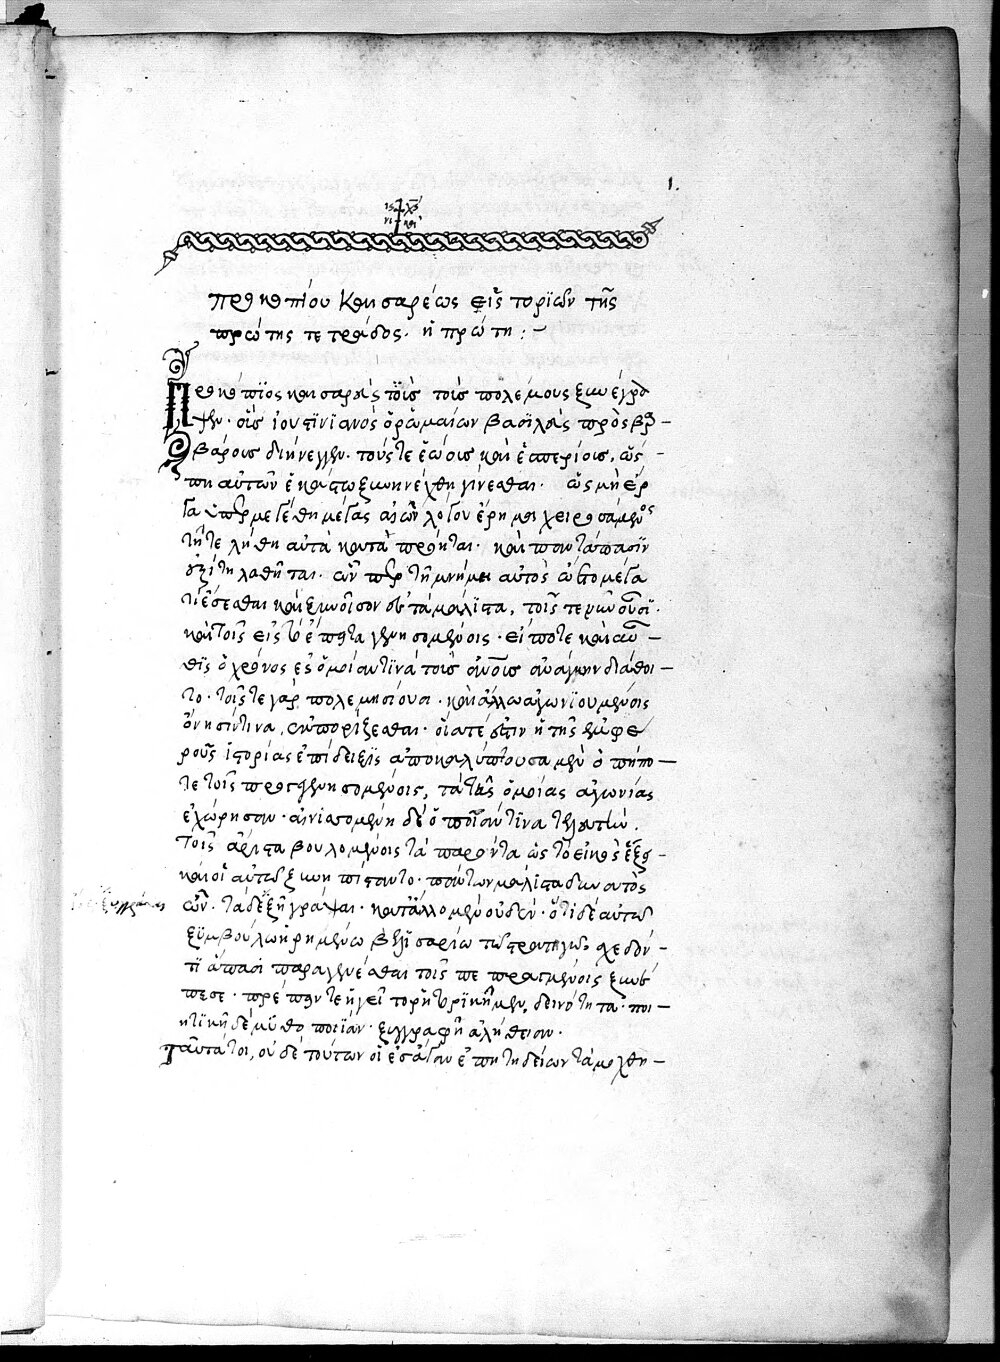 1.
ις χς
νι και
προκοπίου καισαρέως εἰς τοριῶν τῆς
πρώτης τετράδος. ἡ πρώτη : –
Προκόπϊος καισαρεὺς τοὺς πολέμους ξυνέγρα
ψεν· οὓς ἰουστϊνϊανὸς ὁ ῥωμαίων βασϊλεὺς πρὸς βαρ –
βάρους διήνεγκεν· τούς τε ἑώους καὶ ἑσπερίους, ὥς –
πη αὐτῶν ἑκάστω ξυνηνέχθη γίνεσθαι· ὡς μὴ ἔρ
γα ὑπερμεγέθη μέγας αἰὼν λόγον ἔρημα χειρωσάμενος
τῇ τε λήθη αὐτὰ καταπρόηται· καὶ παντάπασϊν
ἐξίτηλα θῆται· ὧν περ τὴν μνήμην αὐτὸς ὤετο μέγα
τι ἔσεσθαι καὶ ξυνοῖσον ἐς τὰ μάλϊστα, τοῖς τε νῦν οὖσϊ·
καὶ τοῖς εἰς τὸ ἔπειτα γενησομένοις· εἴ ποτε καὶ αὖ –
θϊς ὁ χρόνος ἐς ὁμοίαν τϊνὰ τοὺς ἀνθρώπους ἀνάγκην διάθοι –
το· τοῖς τε γὰρ πολεμησίουσι· καὶ ἄλλως ἀγωνϊουμένοις
ὄνησίν τινα ἐκπορίζεσθαι· οἵα τέ ἐστιν ἡ τῆς ἐμφε
ροῦς ἱστορίας ἐπίδειξϊς ἀποκαλύπτουσα μὲν ὅπη πο –
τε τοῖς προγεγενησομένοις, τὰ τῆς ὁμοίας ἀγωνίας
ἐχώρησεν· αἰνισσομένη δὲ ὁποίαν τϊνα τελευτὴν
τοῖς ἄριστα βουλομένοις τὰ παρόντα ὡς τὸ εἰκὸς ἕξει –
καί οἱ αὐτῷ ξυνηπίστατο· πάντων μάλιστα δυνατὸς
ὢν· τάδε ξυγγράψαι· κατ' ἄλλο μὲν οὐδέν· ὅτι δὲ αὐτῷ
ξϋμβούλω ἡρημένω βελισαρίω τῷ στρατηγῷ σχεδόν –
τϊ ἅπασι παραγενέσθαι τοῖς πεπραγμένοις ξυνέ
πεσε· πρέπειν τε ἡγεῖτο ῥητορϊκῇ μὲν, δεινότητα· ποι –
ητϊκῇ δὲ μϋθοποιΐαν· ξυγγραφῇ ἀλήθειαν.
Ταῦτά τοι, οὐδέ του τῶν οἱ ἐς ἄγαν ἐπιτηδείων τὰ μοχθη –